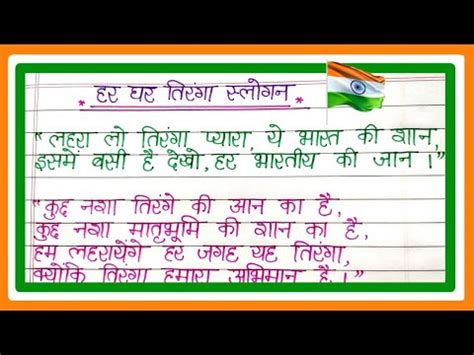 * हर घर तिरंगा स्लोगन *
“लहरा लो तिरंगा प्यारा, ये भारत की शान,
इसमें बसी है देखो, हर भारतीय की जान।”
“कुछ नशा तिरंगे की आन का है,
कुछ नशा मातृभूमि की शान का है,
हम लहरायेंगे हर जगह यह तिरंगा,
क्योंकि तिरंगा हमारा अभिमान है।”